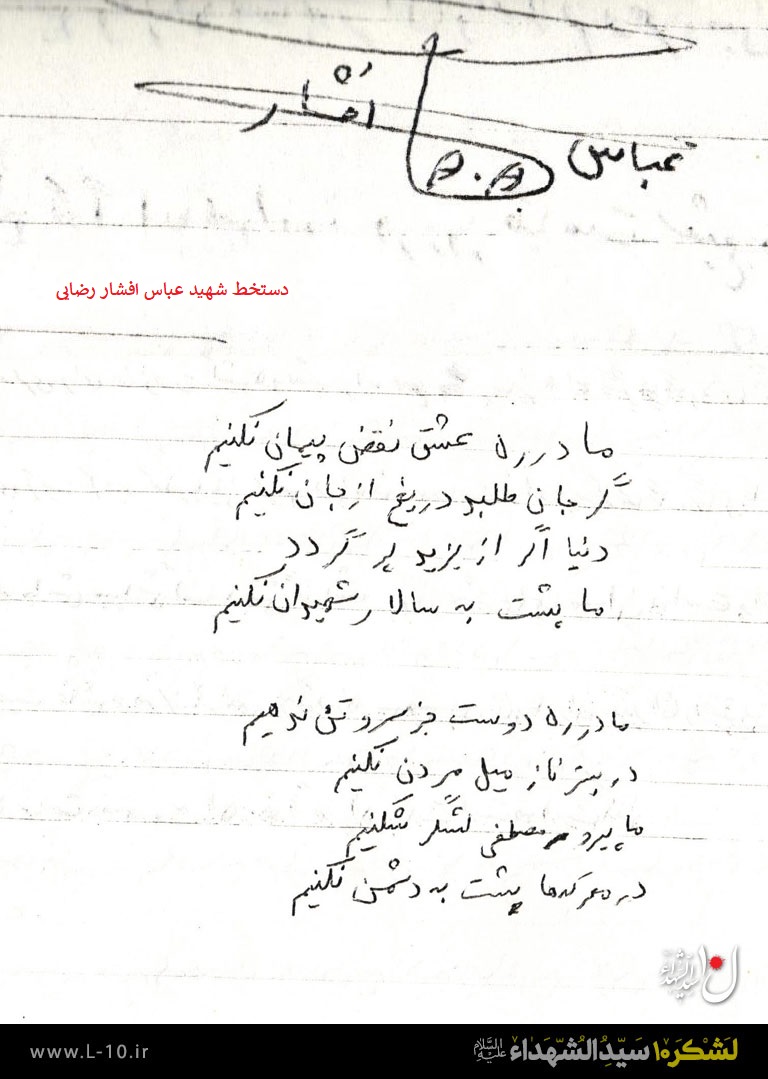 افشار
عباس
A.A
دستخط شهید عباس افشار رضایی
ما در ره عشق نقض پیمان نکنیم
گر جان طلبد دریغ از جان نکنیم
دنیا اگر از یزید پر گردد
ما پشت به سالار شهیدان نکنیم
ما در ره دوست جز سر و تن ندهیم
در بستر ناز میل مردن نکنیم
ما پیرو مصطفی لشگر شکنیم
در معرکه‌ها پشت به دشمن نکنیم
لَشْکَرِه۱۰ سَیِّدُالشُّهَداء عَلَیْهِ السَّلام
www.L-10.ir